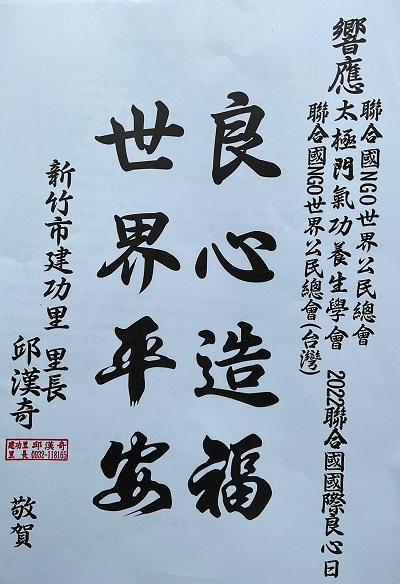 響應
聯合國NGO世界公民總會
太極門氣功養生學會
聯合國NGO世界公民總會(台灣)
2022聯合國國際良心日
良心造福
世界平安
新竹市建功里 里長
邱漢奇
建功里 邱漢奇
里長 0932-118165
敬賀